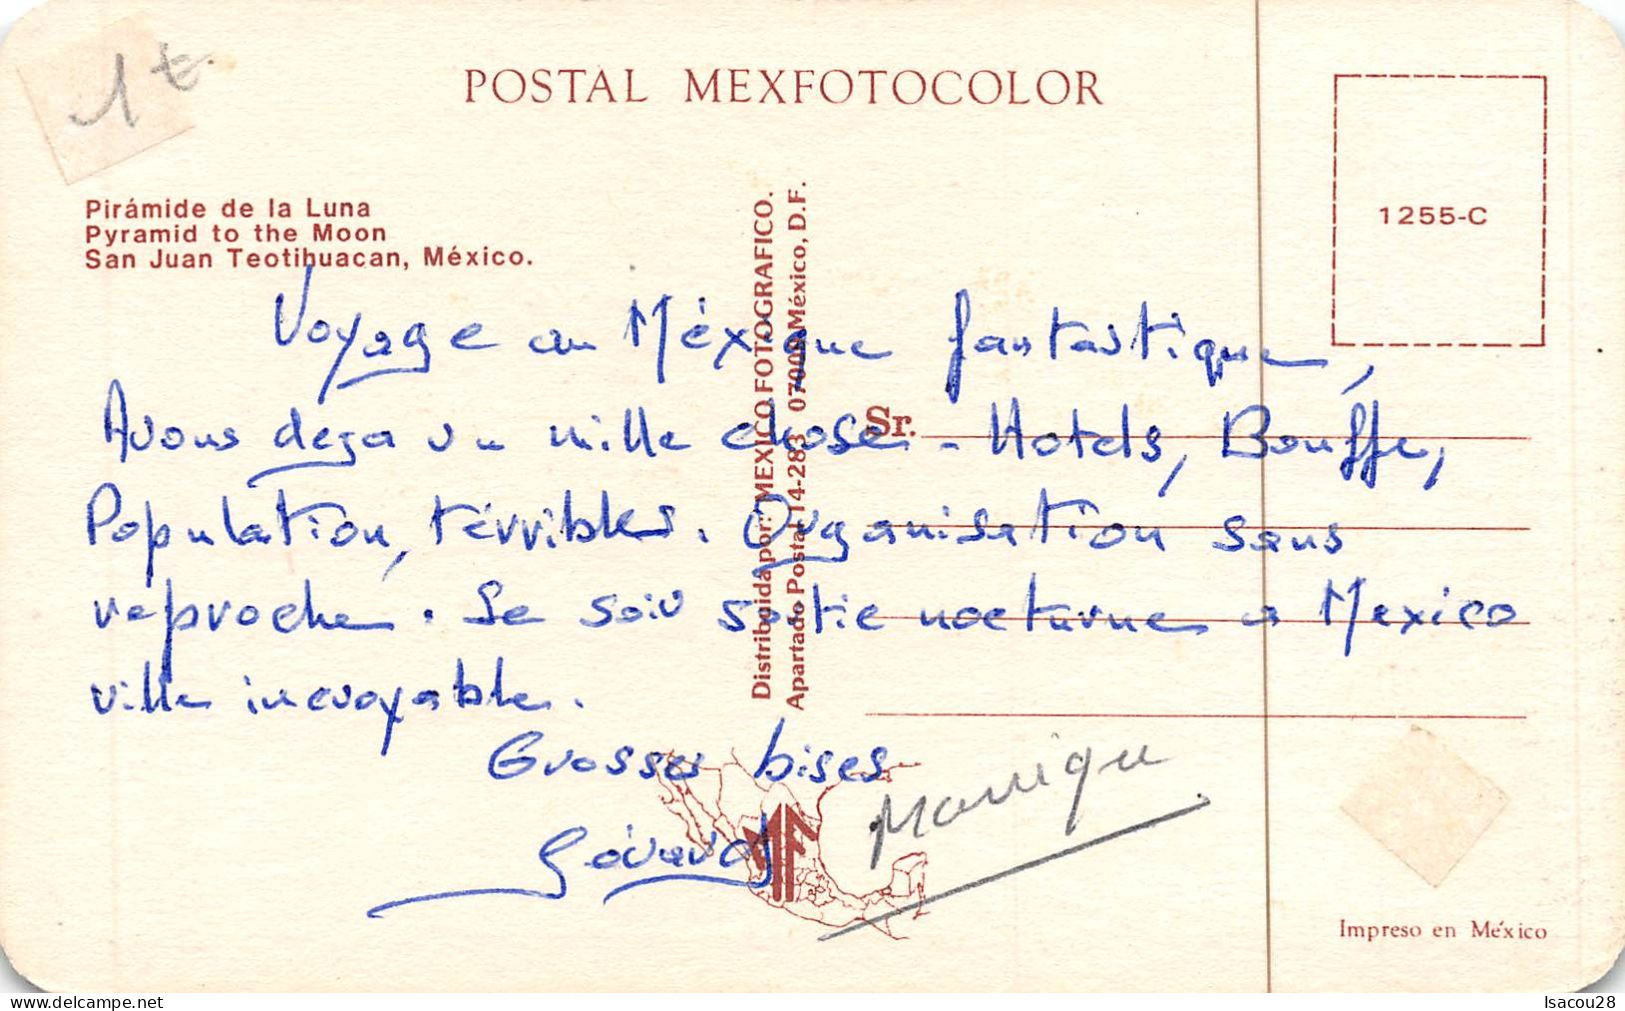 1€
POSTAL MEXFOTOCOLOR
1255-C
Pirámide de la Luna
Pyramid to the Moon
San Juan Teotihuacan, México.
Distribuida por: MEXICO FOTOGRAFICO.
Apartado Postal 114-283 07000 México, D.F.
Sr.
Voyage au Méxique fantastique,
Avons deja vu mille chose - Hotels, Bouffe,
Population, térribles. Organisation sans
reproche. Se soir sortie nocturne a Mexico
ville incroyable.
Grosses bises
Gérard
Monique
MF
Impreso en México
Isacou28